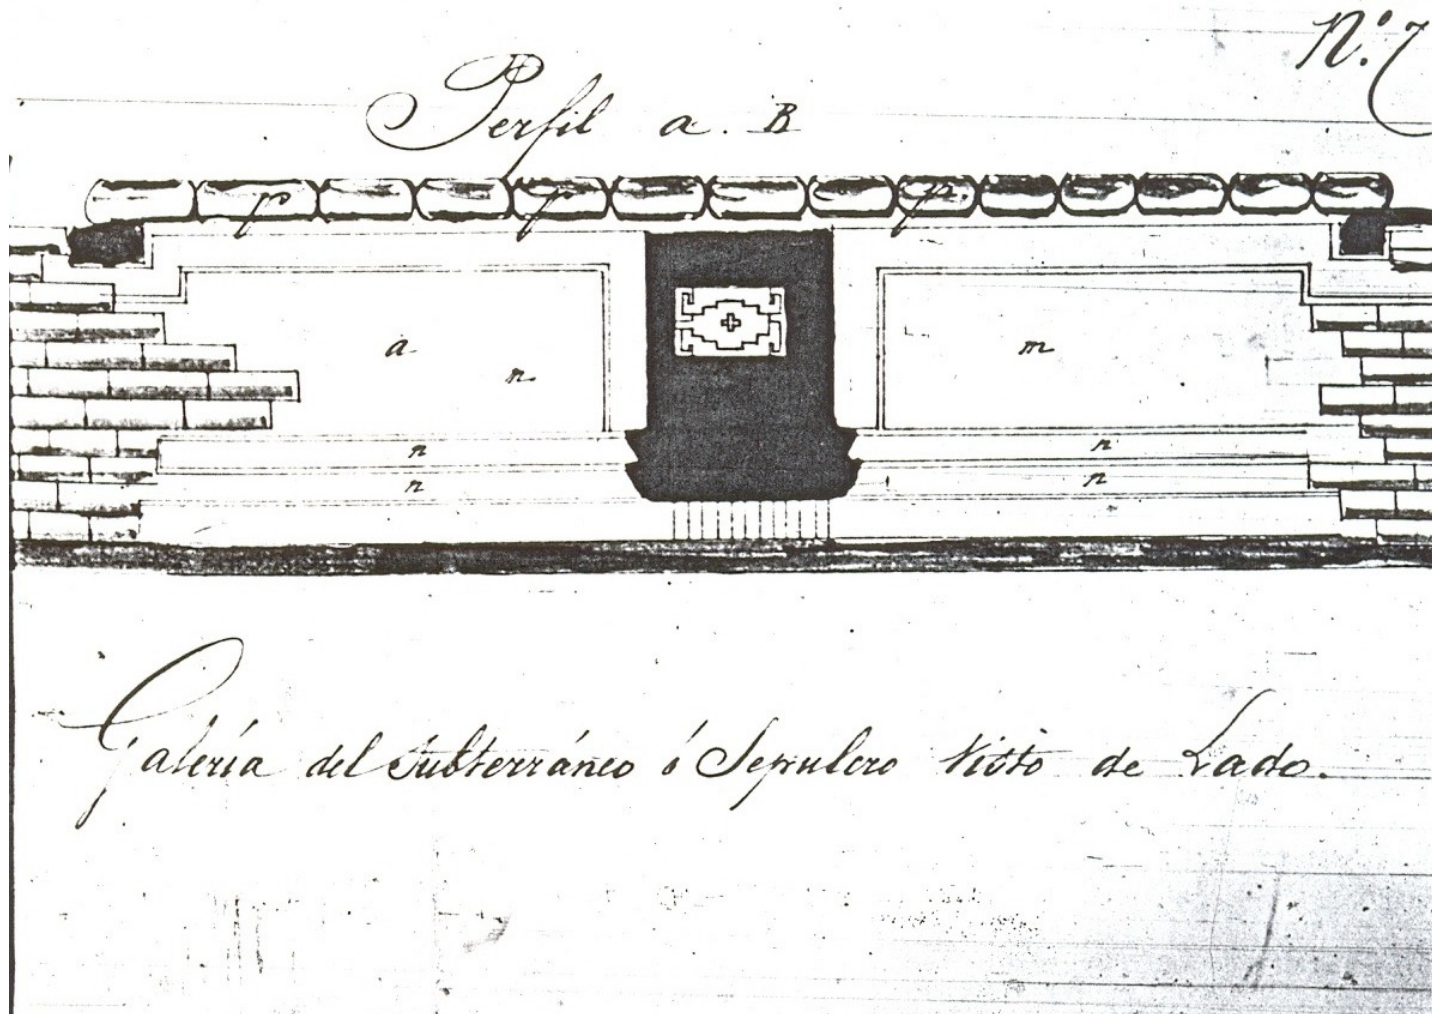 N.º 7
Perfil a. B
p p p
a m
n
n n
n n
Galería del Subterráneo ó Sepulcro Visto de Lado.